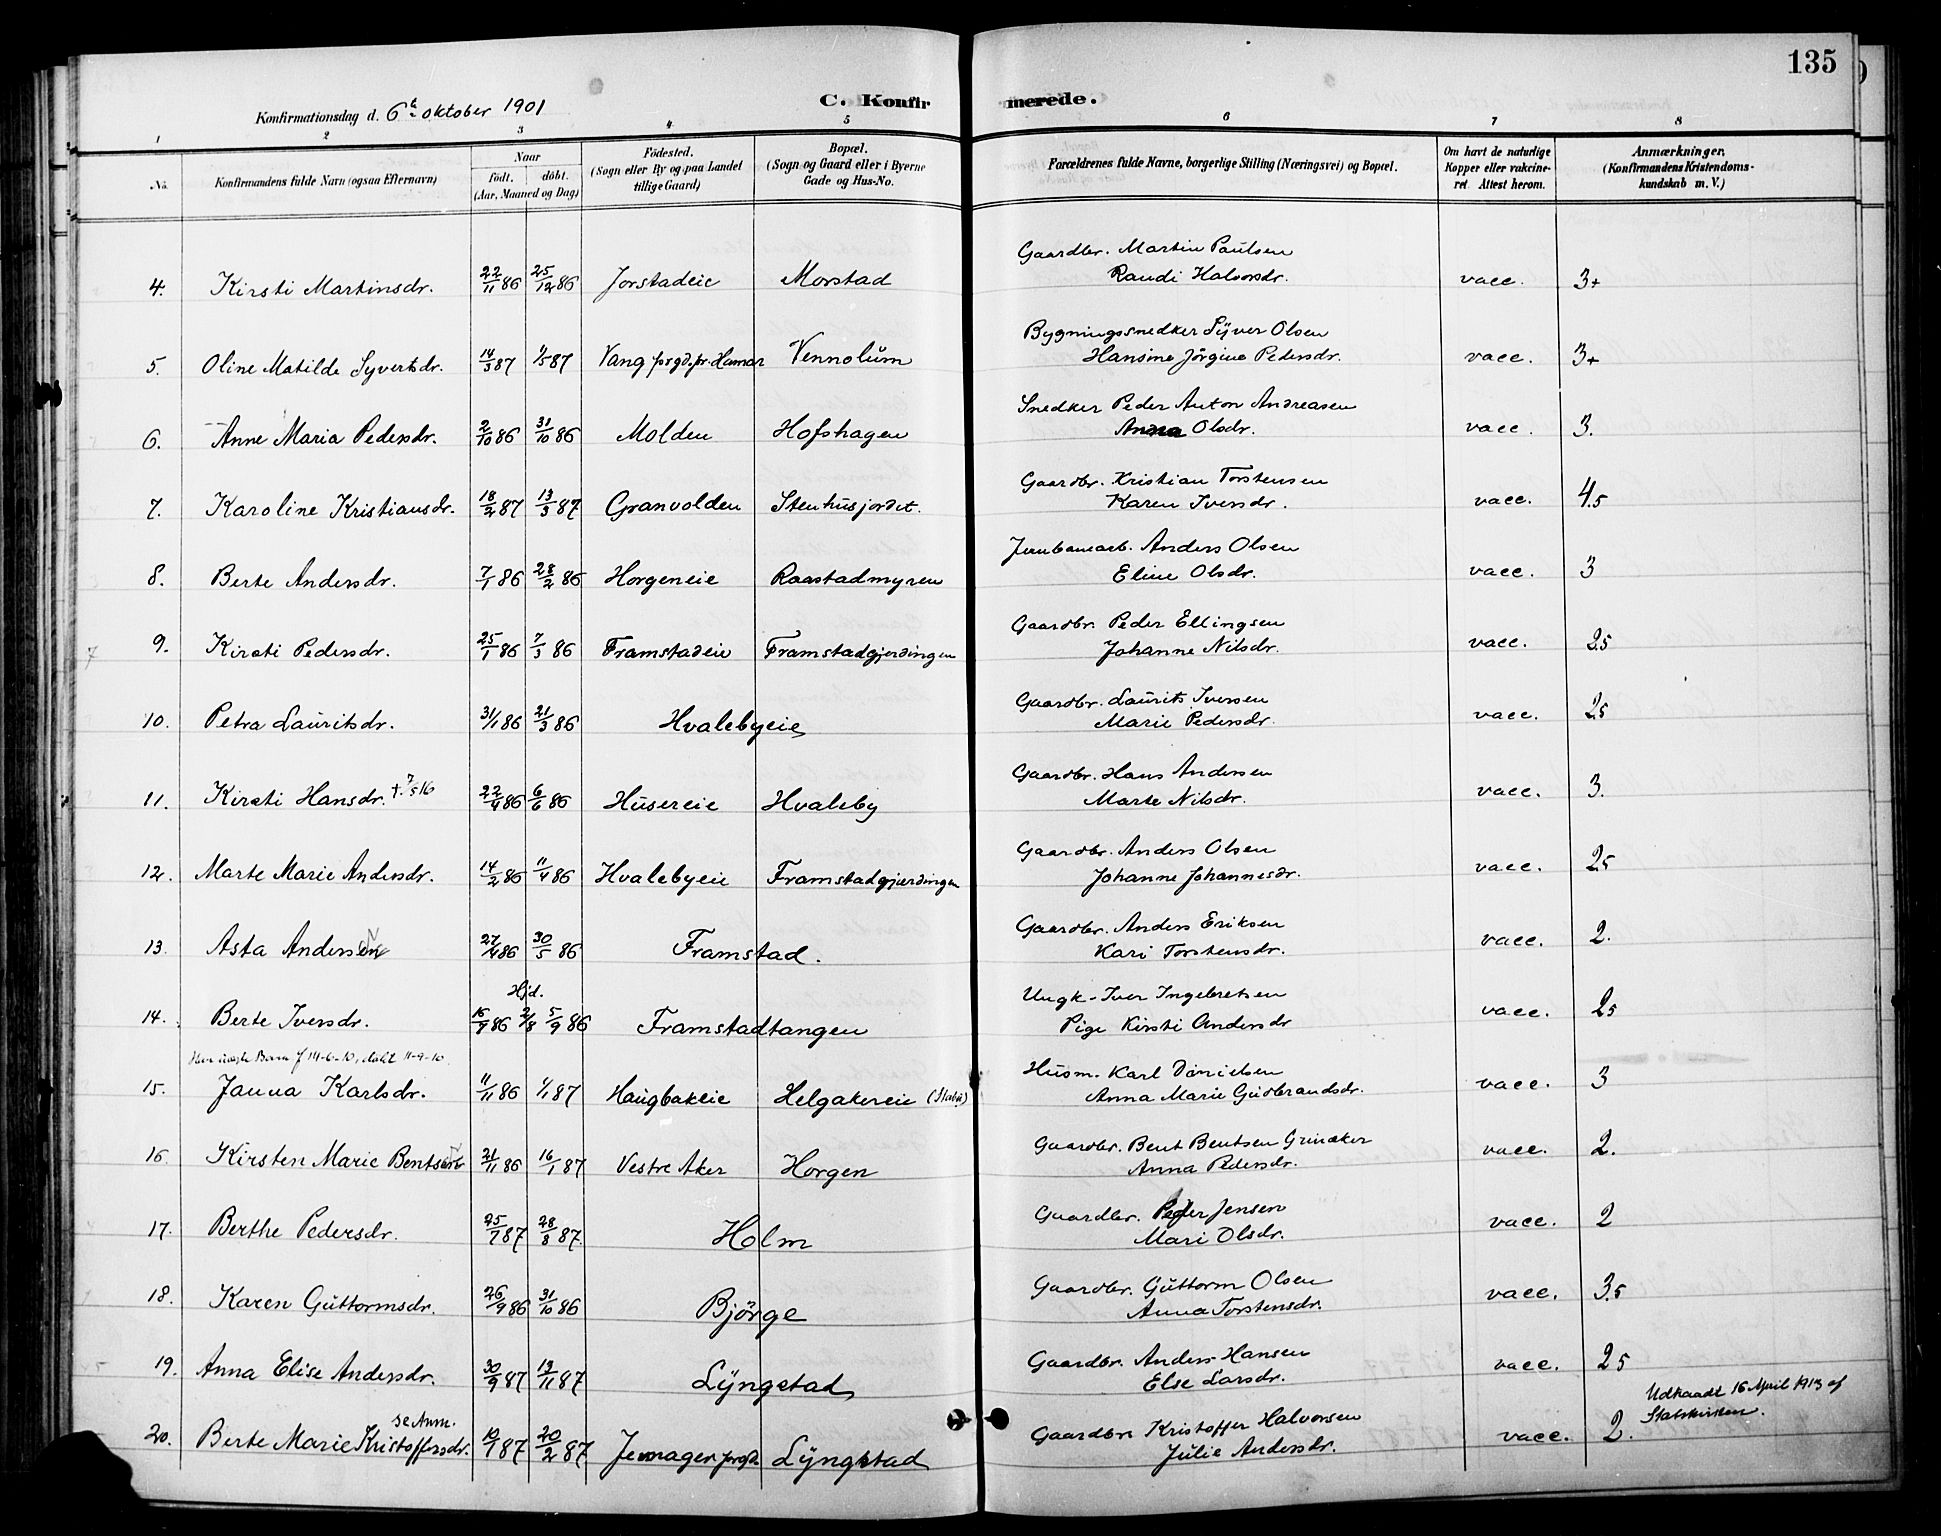 135
Konfirmationsdag d. 6te oktober 1901
C. Konfirmerede.
1 2 3 4 5 6 7 8
No.
Konfirmandens fulde Navn (ogsaa Efternavn)
Naar
født. døbt.
(Aar, Maaned og Dag)
Fødested.
(Sogn eller By og paa Landet
tillige Gaard)
Bopæl.
(Sogn og Gaard eller i Byerne
Gade og Hus-No.
Forældrenes fulde Navne, borgerlige Stilling (Næringsvei) og Bopæl.
Om havt de naturlige
Kopper eller vakcine-
ret. Attest herom.
Anmærkninger,
(Konfirmandens Kristendoms-
kundskab m. V.)
4. Kirsti Martinsdr. 22/11 86 25/12 86 Jorstadeie Morstad Gaardbr. Martin Paulsen
Randi Halvorsdr. vacc. 3+
5. Oline Matilde Syvertsdr. 14/3 87 1/5 87 Vang prgd. pr. Hamar Vennolum Bygningssnedker Syver Olsen
Hansine Jörgine Pedersdr. vacc. 3+
6. Anne Maria Pedersdr. 2/10 86 31/10 86 Molden Hofshagen Snedker Peder Anton Andreasen
Anna Olsdr. vacc. 3.
7. Karoline Kristiansdr. 18/2 87 13/3 87 Granvolden Stenhusjordet. Gaardbr. Kristian Torstensen
Karen Iversdr. vacc. 4.5
8. Berte Andersdr. 7/1 86 28/2 86 Horgeneie Raastadmyren Jernbanearb. Anders Olsen
Eline Olsdr. vacc. 3
9. Kirsti Pedersdr. 25/1 86 7/3 86 Framstadeie Framstadgjerdingen Gaardbr. Peder Ellingsen
Johanne Nilsdr. vacc. 2.5
10. Petra Lauritsdr. 31/1 86 21/3 86 Hvalebyeie Gaardbr. Laurits Iversen
Marie Pedersdr. vacc. 2.5
11. Kirsti Hansdr. +. 7/5 16 22/4 86 6/6 86 Husereie Hvaleby Gaardbr. Hans Andersen
Marte Nilsdr. vacc. 3.
12. Marte Marie Andersdr. 14/2 86 11/4 86 Hvalebyeie Framstadgjerdingen Gaardbr. Anders Olsen
Johanne Johannesdr. vacc. 2.5
13. Asta Andersen 27/4 86 30/5 86 Framstad. Gaardbr. Anders Eriksen
Kari Torstensdr. vacc. 2.
Hjd.
14. Berte Iversdr. 15/7 86 2/8 5/9 86 Framstadtangen Ungk. Iver Ingebretsen
Pige Kirsti Andersdr vacc. 2.5
Barn f 14-6-10, døbt 11-9-10.
15. Janna Karlsdr. 11/11 86 1/1 87 Haugbakeie Helgakereie Husm. Karl Danielsen
Anna Marie Gudbrandsdr. vacc. 3
16. Kirsten Marie 21/11 86 16/1 87 Vestre Aker Horgen Gaardbr. Bent Bentsen Grinaker
Anna Pedersdr. vacc. 2.
17. Berthe Pedersdr. 25/7 87 28/8 87. Holm Gaardbr. Peder Jensen
Mari Olsdr. vacc. 2
18. Karen Guttormsdr. 26/9 86 31/10 86 Björge Gaardbr. Guttorm Olsen
Anna Torstensdr. vacc. 3.5
19. Anna Elise Andersdr. 30/9 87 13/11 87 Lyngstad Gaardbr. Anders Hansen
Else Larsdr. vacc. 2.5
se Anm.
20. Berte Marie Kristoffersdr. 10/1 87 20/2 87. Jevnager prgd. Lyngstad Gaardbr. Kristoffer Halvorsen
Julie Andersdr. vacc. 2.
Udtraadt 16 April 1913 af
Statskirken.